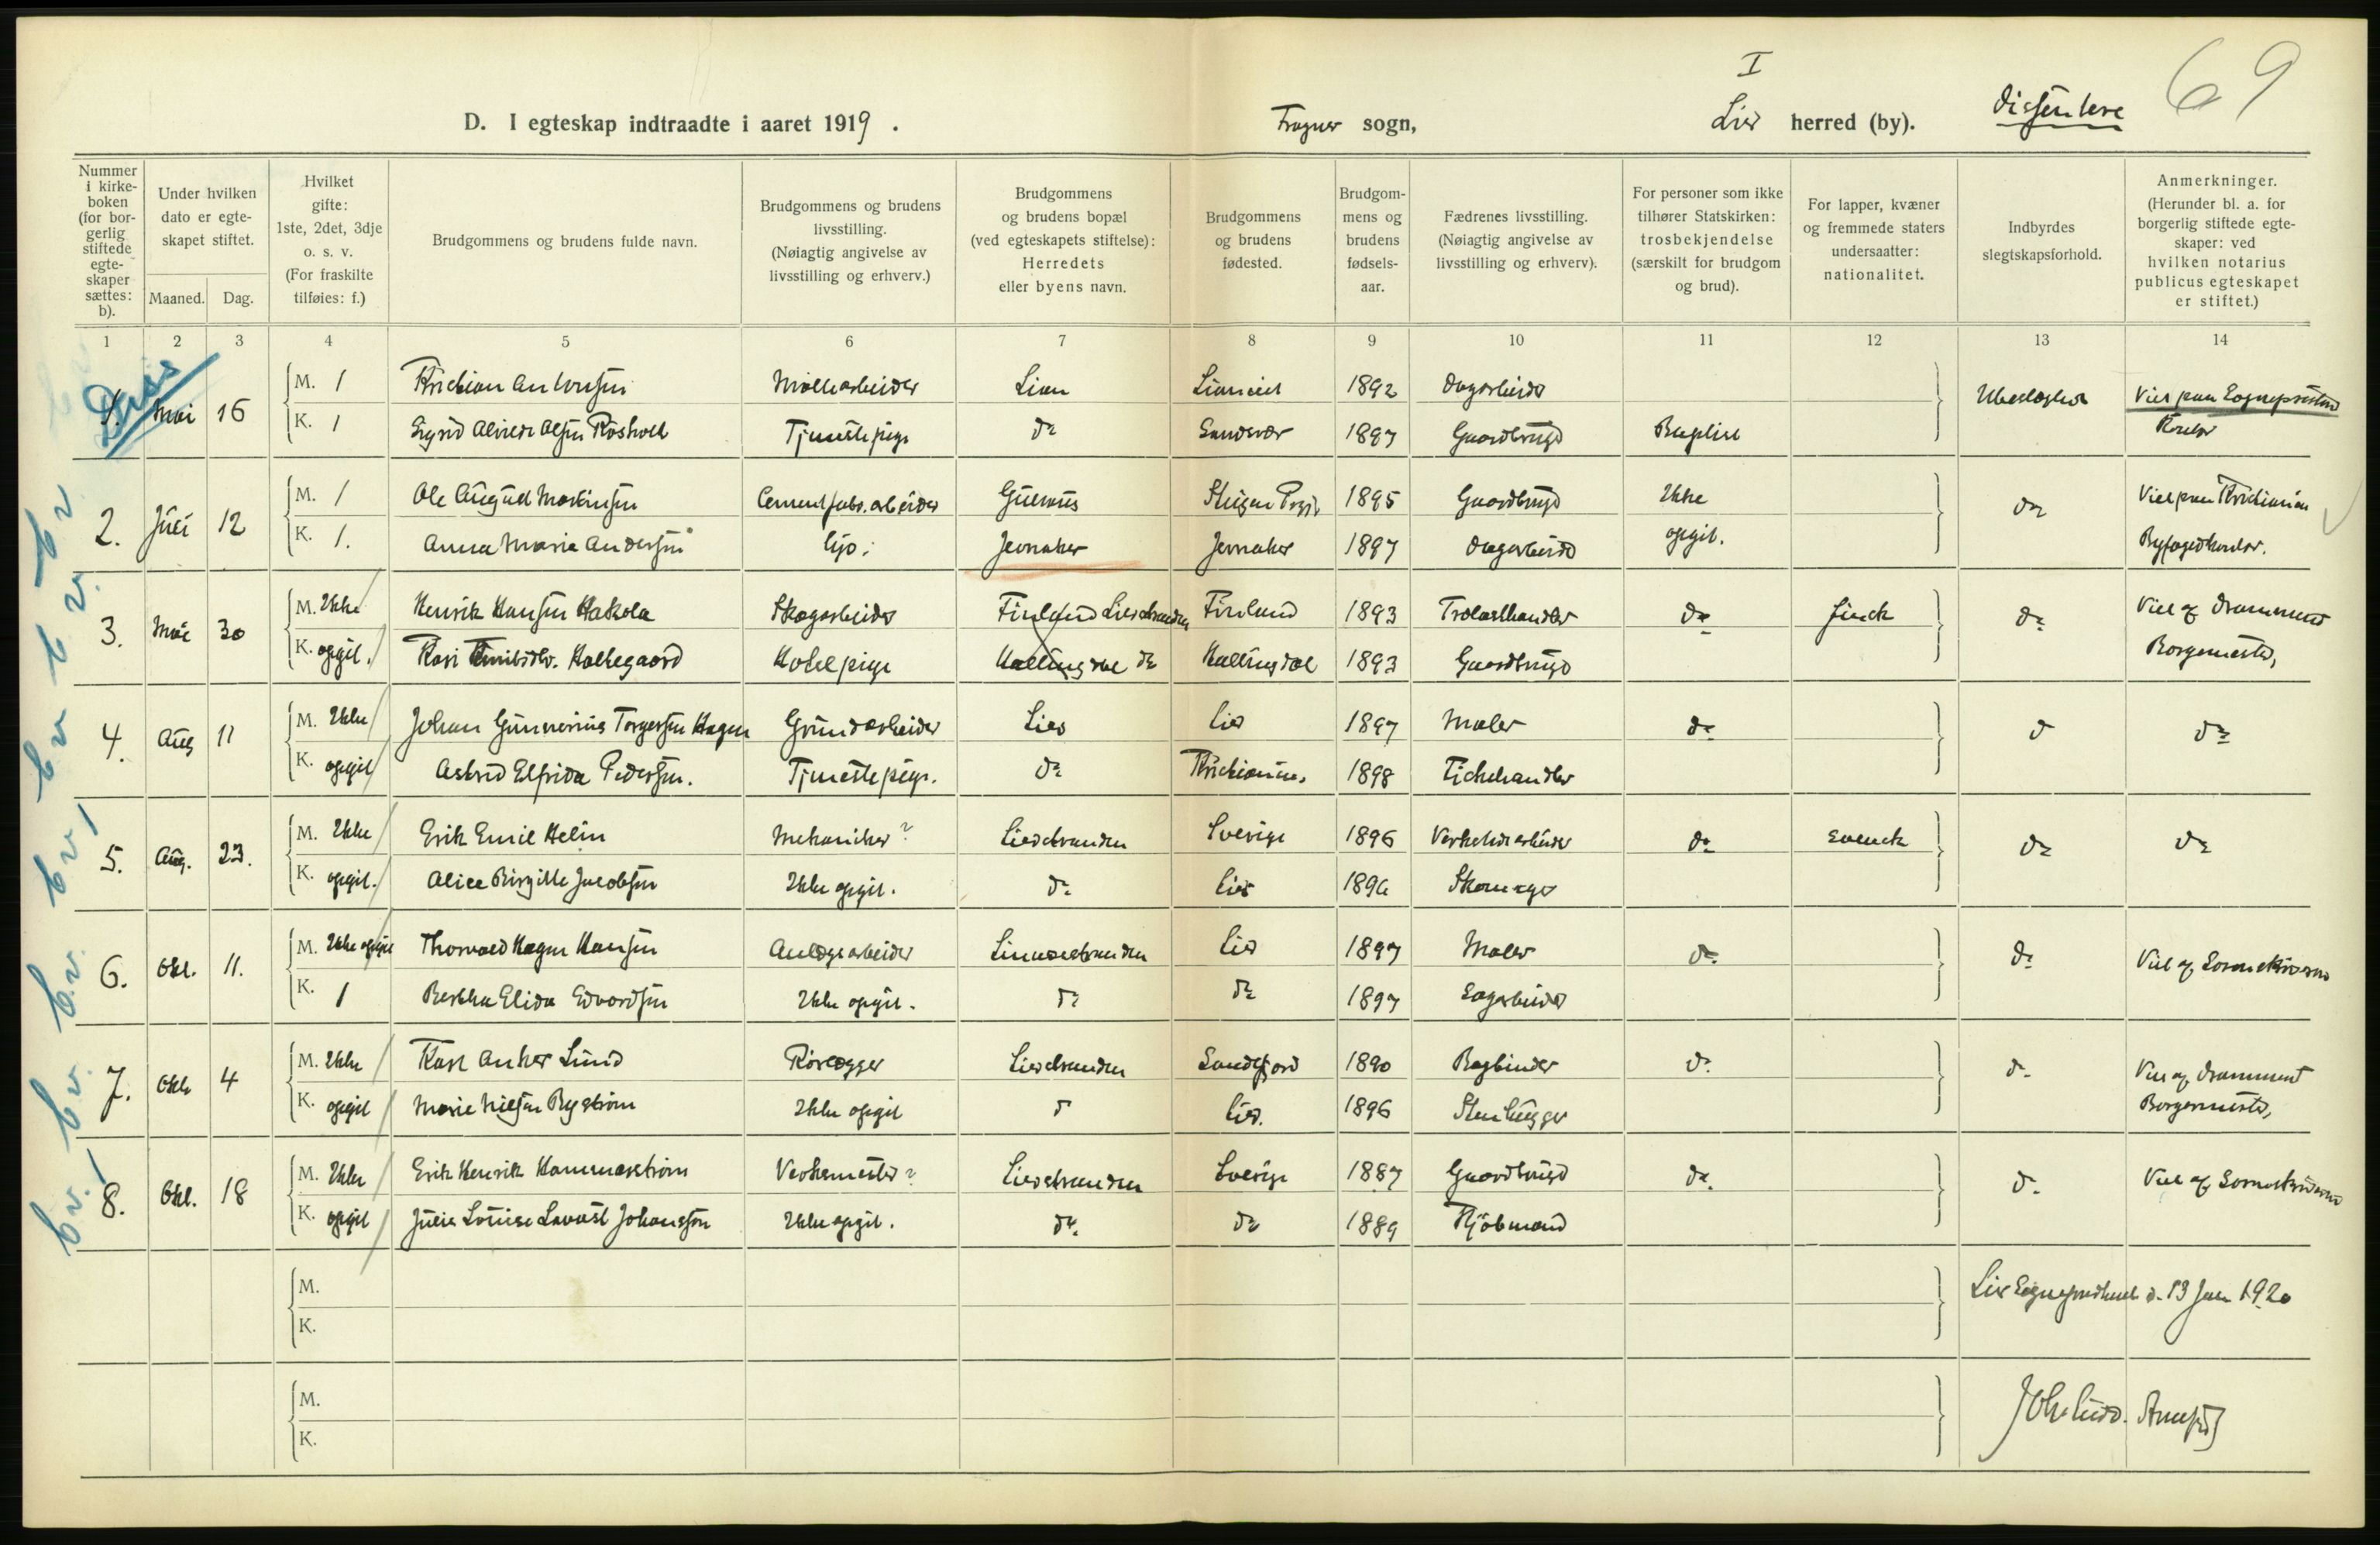 I
69
D. I egteskap indtraadte i aaret 1919. Frogner sogn, Lier herred (by). Dissentere
Nummer i kirkeboken (for borgerlig stiftede egteskaper sættes: b).
Under hvilken dato er egteskapet stiftet.
Maaned. Dag.
Hvilket gifte: 1ste, 2det, 3dje o. s. v. (For fraskilte tilføies: f.)
Brudgommens og brudens fulde navn.
Brudgommens og brudens livsstilling. (Nøiagtig angivelse av livsstilling og erhverv.)
Brudgommens og brudens bopæl (ved egteskapets stiftelse): Herredets eller byens navn.
Brudgommens og brudens fødested.
Brudgommens og brudens fødselsaar.
Fædrenes livsstilling. (Nøiagtig angivelse av livsstilling og erhverv).
For personer som ikke tilhører Statskirken: trosbekjendelse (særskilt for brudgom og brud).
For lapper, kvæner og fremmede staters undersaatter: nationalitet.
Indbyrdes slegtskapsforhold.
Anmerkninger. (Herunder bl. a. for borgerlig stiftede egteskaper: ved hvilken notarius publicus egteskapet er stiftet.)
1 2 3 4 5 6 7 8 9 10 11 12 13 14
Diss
1. Mai 16 M. 1 Kristian Antonsen Møllearbeider Lier 1892 Dagarbeider Ubeslægtet Viet paa Sogneprestens
K. 1 Sigrid Alvilde Olsen Tjenestepige do Sandsvær 1897 Gaardbruger Baptist Kontor
b v
2. Juli 12 M. 1 Ole August Martinsen Cementfabr. arbeider 1895 Gaardbruger Ikke do Viet paa Kristiania
K. 1. Anna Maria Andersen Jevnaker Jevnaker 1897 Dagarbeider opgit. Byfogedkontor.
b v
3. Mai 30 M. Ikke Henrik Hansen Hakola Skogsarbeider Finland Lierstranden Finland 1893 Trælasthandler do finsk do Viet af Drammens
K. opgit. Kari Hallegaard Hotelpige Hallingdal do Hallingdal 1893 Gaardbruger Borgemester,
b v
4. Aug 11 M. Ikke Johan Gunnerius Torgersen Hagen Grundarbeider Lier Lier 1897 Maler do d do
K. opgit Astrid Elfrida Pedersen. Tjenestepige. do Kristiania. 1898 Fiskehandler
b v
5. Aug. 23. M. Ikke Erik Emil Helin Mekaniker? Lierstranden Sverige 1896 Verkstedsarbeider do svensk do do
K. opgit. Alice Birgitte Jacobsen Ikke opgit. do Lier 1896 Skomager
b.v.
6. Okt. 11. M. Ikke opgit Thorvald Hagen Hansen Anlægsarbeider Lier 1897 Maler do do Viet af Sorenskriveren
K. 1 Bertha Elida Edvardsen Ikke opgit. do do 1897 Sagarbeider
b.v.
7. Okt 4 M. Ikke Karl Anker Lund Rørlægger Lierstranden Sandefjord 1890 Bogbinder do do Viet af Drammens
K. opgit Marie Nilsen Bystrøm Ikke opgit d Lier. 1896 Stenhugger Borgermester,
b.v.
8. Okt. 18 M. Ikke Erik Henrik Hammarström Verksmester? Lierstranden Sverige 1887 Gaardbruger do. do. Viet af Sorenskriveren
K. opgit Julia Louise Johansson Ikke opgit. do. do 1889 Kjøbmand
M.
K.
Lier Sogneprestembede d. 13 Jan 1920
M.
K.